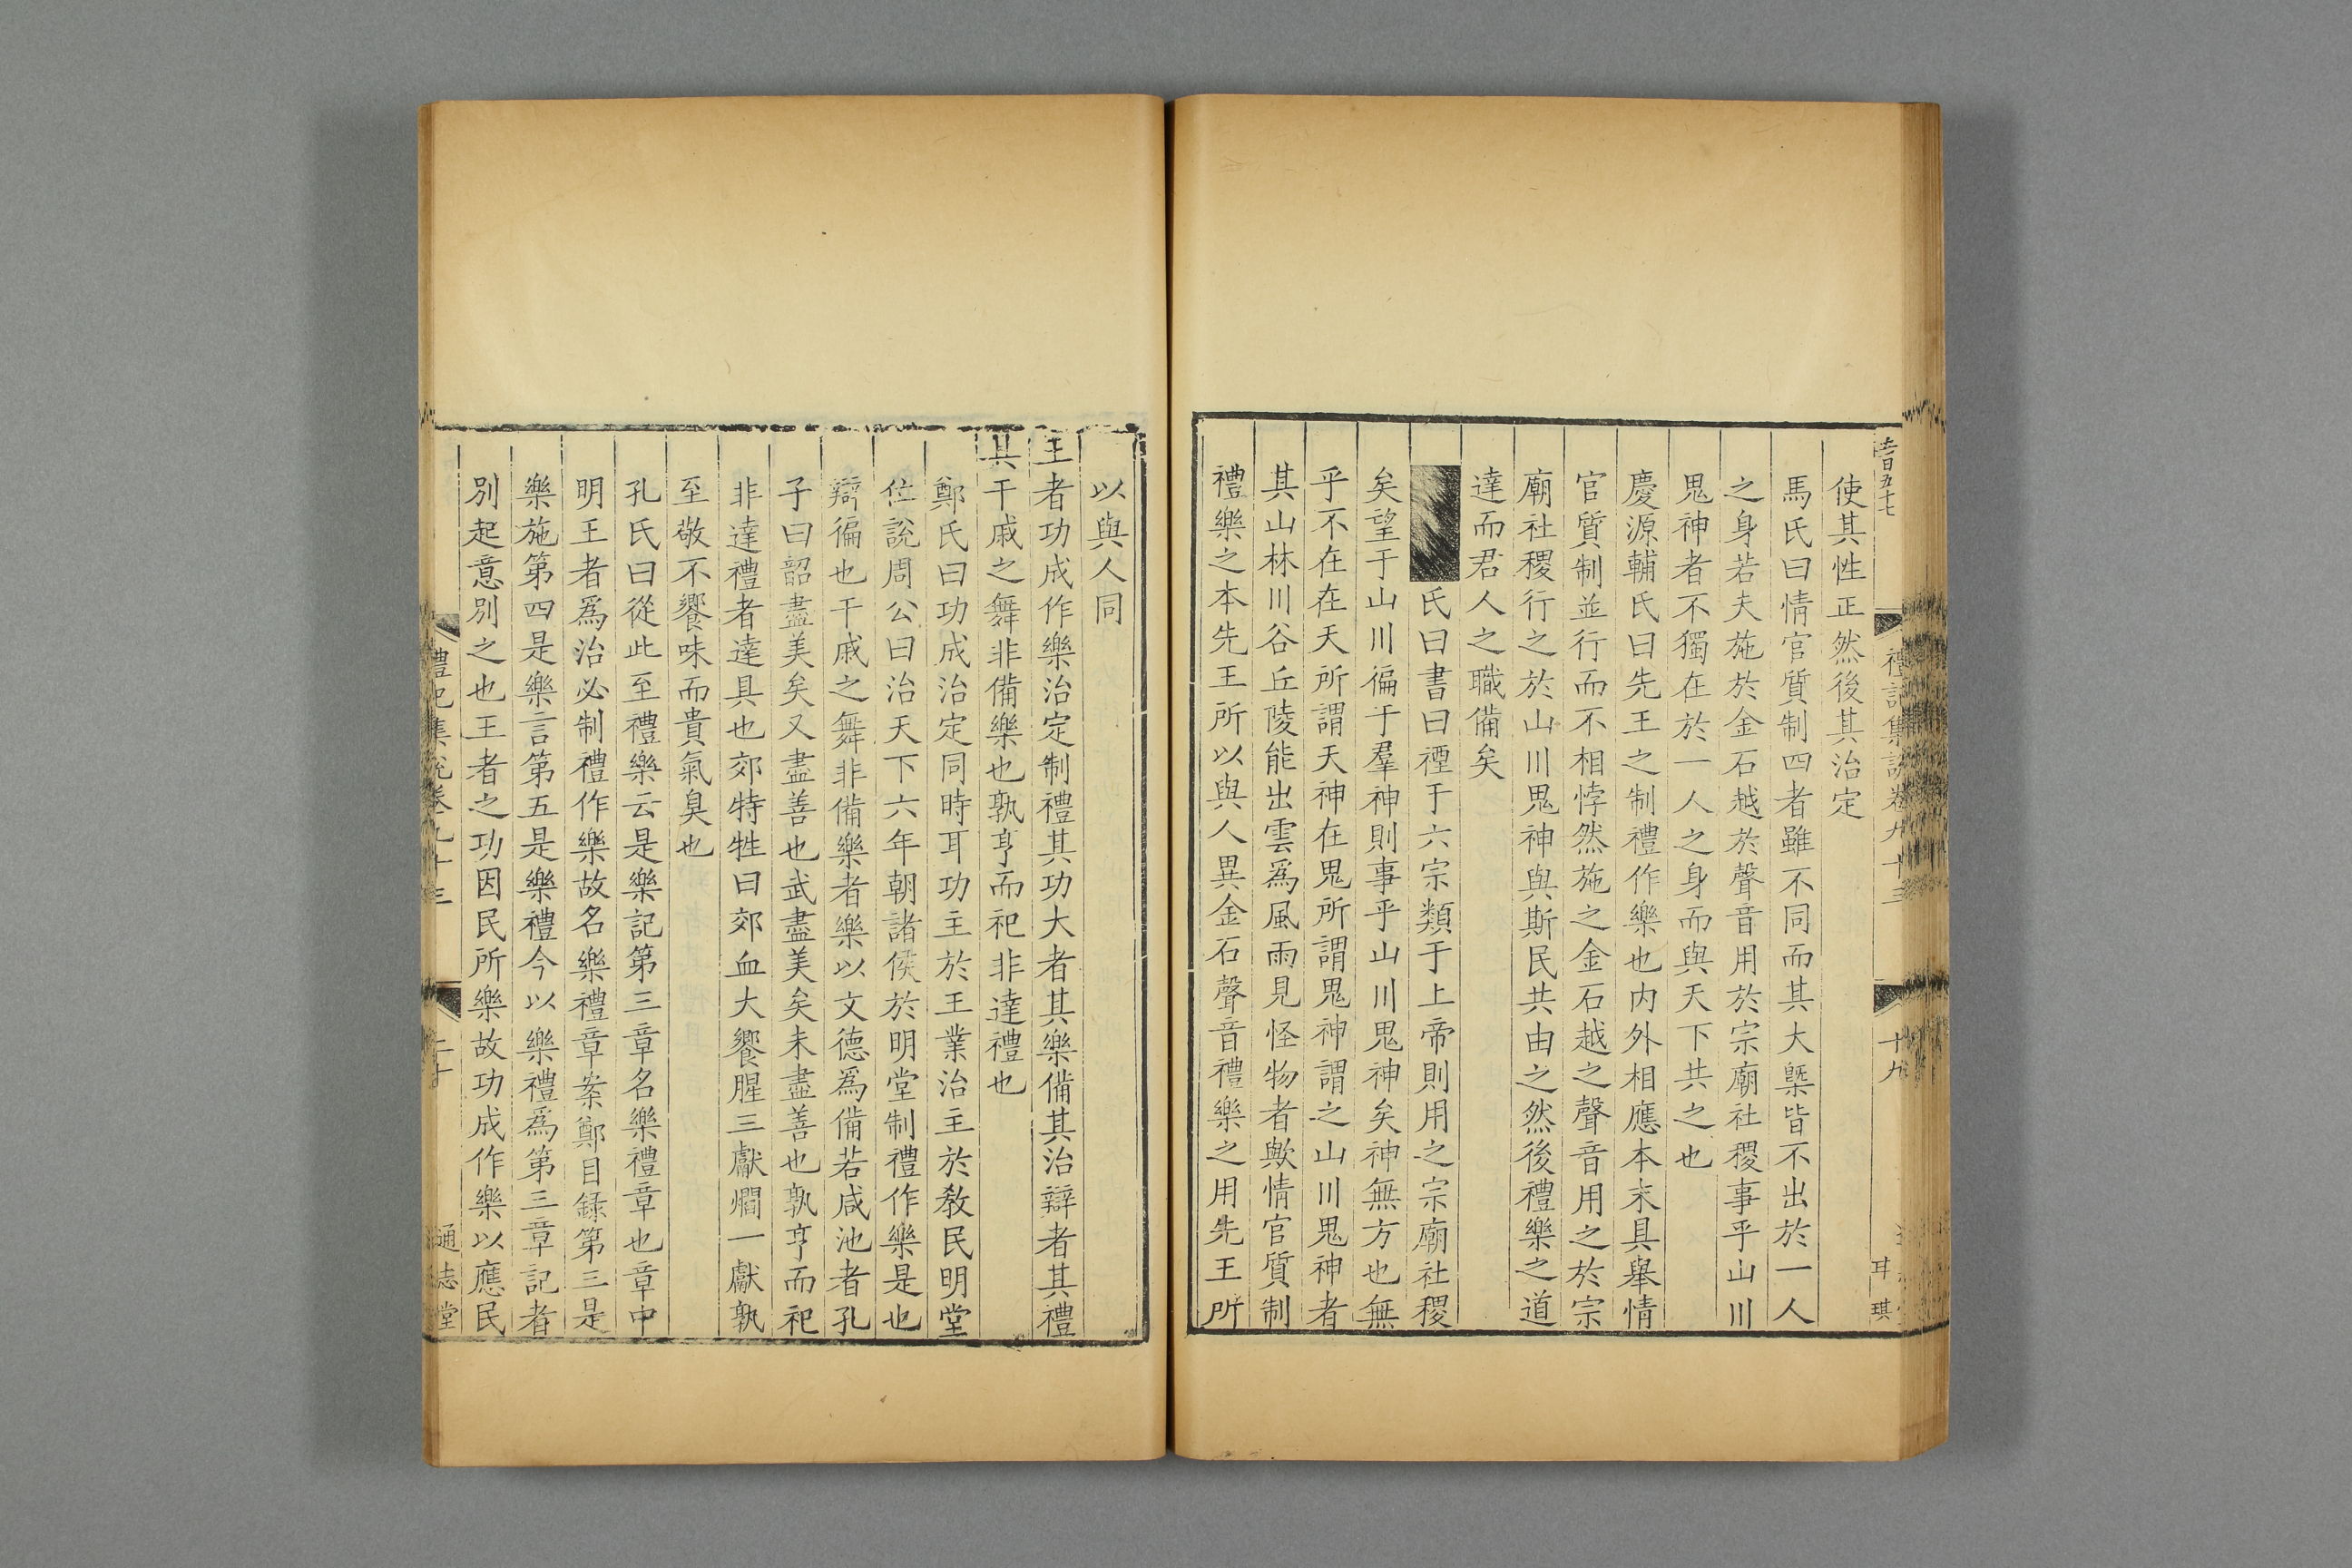 禮記集說卷九十三
十九
使其性正然後其治定
馬氏曰情官質制四者雖不同而其大槩皆不出於一人
之身若夫施於金石越於聲音用於宗廟社稷事乎山川
鬼神者不獨在於一人之身而與天下共之也
慶源輔氏曰先王之制禮作樂也內外相應本末具舉情
官質制並行而不相悖然施之金石越之聲音用之於宗
廟社稷行之於山川鬼神與斯民共由之然後禮樂之道
達而君人之職備矣
氏曰書曰禋于六宗類于上帝則用之宗廟社稷
矣望于山川徧于羣神則事乎山川鬼神矣神無方也無
乎不在在天所謂天神在鬼所謂鬼神謂之山川鬼神者
其山林川谷丘陵能出雲爲風雨見怪物者歟情官質制
禮樂之本先王所以與人異金石聲音禮樂之用先王所
以與人同
王者功成作樂治定制禮其功大者其樂備其治辯者其禮
具干戚之舞非備樂也孰亨而祀非達禮也
鄭氏曰功成治定同時耳功主於王業治主於教民明堂
位說周公曰治天下六年朝諸侯於明堂制禮作樂是也
辯徧也干戚之舞非備樂者樂以文德爲備若咸池者孔
子曰韶盡美矣又盡善也武盡美矣未盡善也孰亨而祀
非達禮者達具也郊特牲曰郊血大饗腥三獻爓一獻孰
至敬不饗味而貴氣臭也
孔氏曰從此至禮樂云是樂記第三章名樂禮章也章中
明王者爲治必制禮作樂故名樂禮章案鄭目録第三是
樂施第四是樂言第五是樂禮今以樂禮爲第三章記者
別起意別之也王者之功因民所樂故功成作樂以應民
禮記集說卷九十三
二十
通志堂